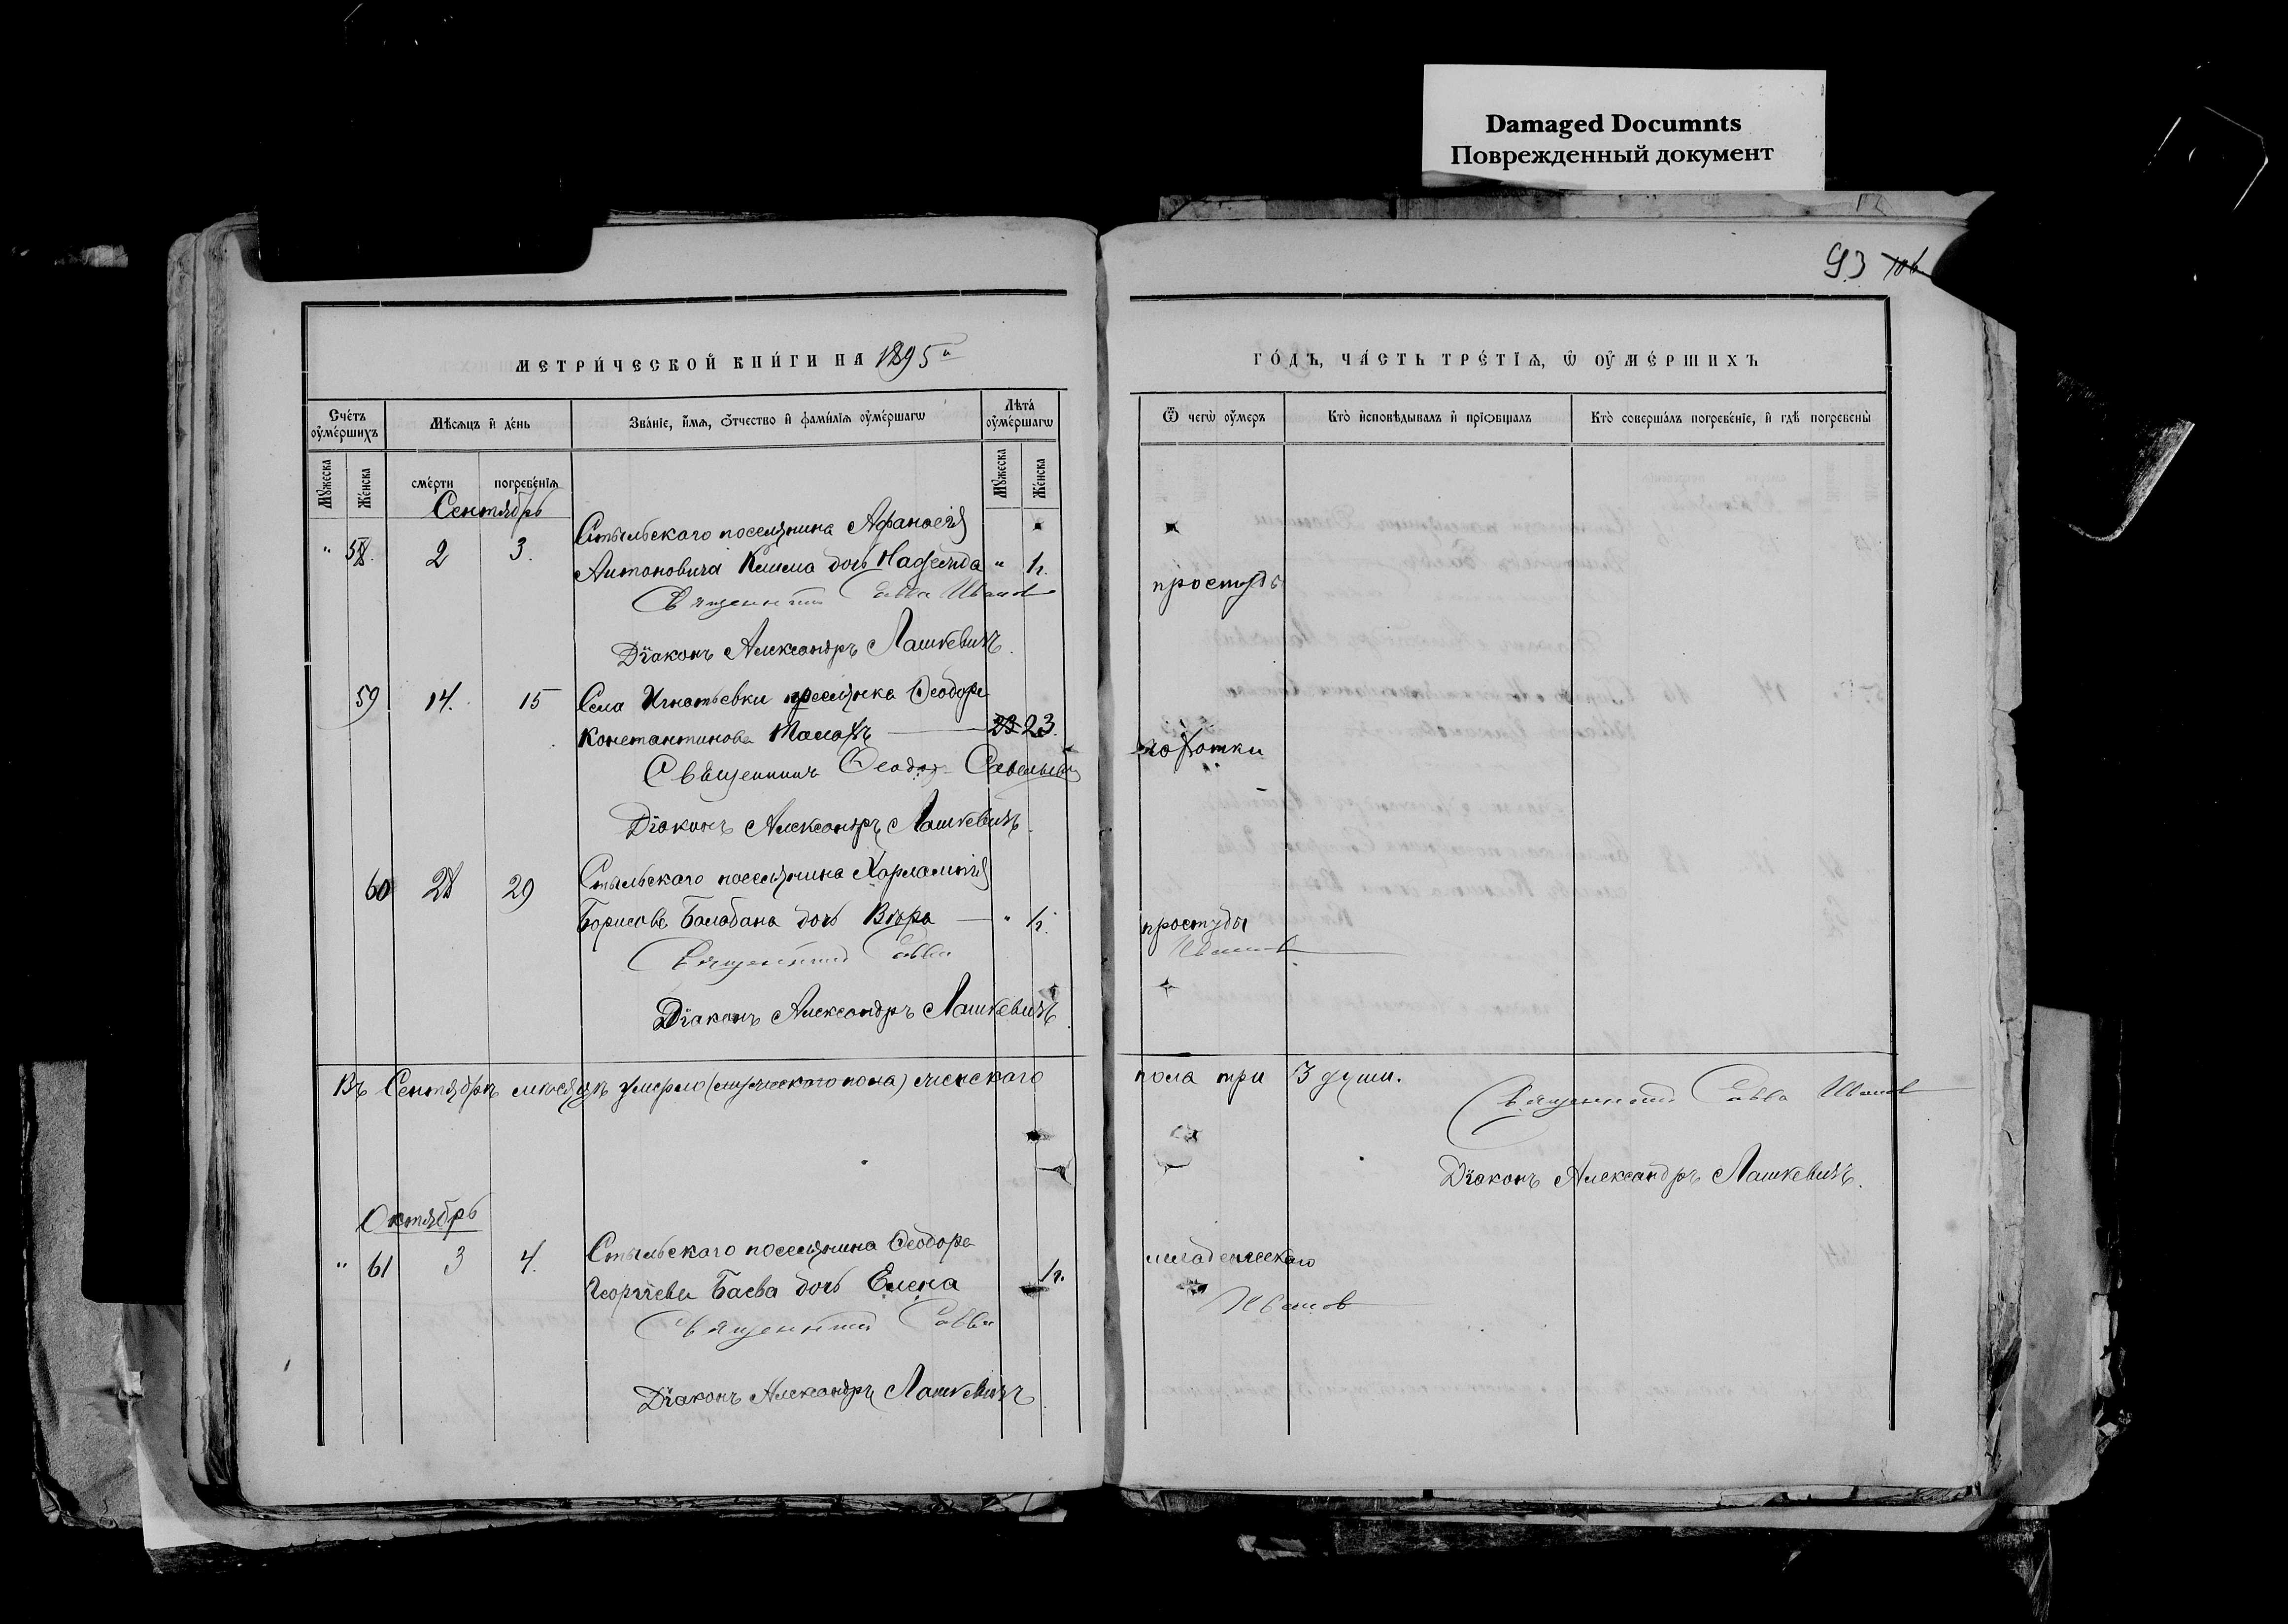 Damaged Documnts
Поврежденный документ
93 106
МЕТРИ́ЧЕСКОЙ КНИ́ГИ НА 1895 й
ГО́ДЪ, ЧА́СТЬ ТРЕ́ТІѦ, Ѡ ОУ҆МЕ́РШИХЪ
Сче́тъ оу҆ме́ршихъ
Мѣ́сѧцъ и҆ де́нь
Зва́нїе, и҆́мѧ, ѻ҆́тчество и҆ фами́лїѧ оу҆ме́ршагѡ
Лѣта̀ оу҆ме́ршагѡ
Ѿ чегѡ̀ оу҆́меръ
Кто̀ и҆сповѣ́дывалъ и҆ прїѡбща́лъ
Кто̀ соверша́лъ погребе́нїе, и҆ гдѣ̀ погребены̀
Мꙋ́жеска
Же́нска
сме́рти
погребе́нїѧ
Мꙋ́жеска
Же́нска
Сентябрь
Стыльскаго поселянина Афанасія
" 58. 2 3. Антоновича дочь Надежда " простуды
Священникъ Савва Иванов
Діаконъ Александръ Лашкевичъ.
59 14. 15 Села Игнатьевки поселянка Ѳеодора
Константинова 23 23. чахотки
Священникъ Ѳеодор Савельевъ
Діаконъ Александръ Лашкевичъ.
60 28 29 Стыльскаго поселянина Харлампія
Борисова Балабана дочь Вѣра — " простуды
Священникъ Савва Иванов
Діаконъ Александръ Лашкевичъ
Въ Сентябрѣ мѣсяцѣ умерло (мужескаго пола) женскаго пола три 3 души.
Священникъ Савва Иванов
Діаконъ Александръ Лашкевичъ.
Октябрь
" 61 3 4. Стыльскаго поселянина Ѳеодора
Георгіева Баева дочь Елена младенческаго
Священникъ Савва Иванов
Діаконъ Александръ Лашкевичъ